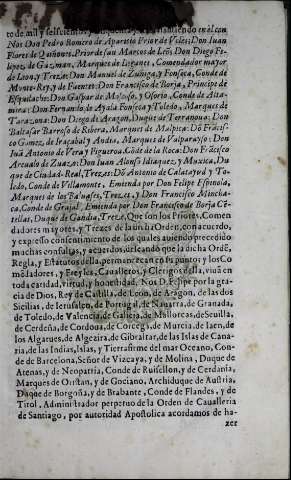 to de mil y seiscientos y cinquenta y
Nos Don Pedro Romero de Aparisio Prior de Vcles; Don Juan
Flores de Quiñones, Prior de san Marcos de Leō; Don Diego Fe-
lipez de Guzman, Marques de Leganes, Comendador mayor
de Leon, y Treze; Don Manuel de Zuñiga, y Fonseca, Conde de
Monte-Rey, y de Fuentes; Don Francisco de Borja, Principe de
Esquilache; Don Gaspar de Moscoso, y Osorio, Conde de Alta-
mira; Don Fernando de Ayala Fonseca y Toledo, Marques de
Taraçona; Don Diego de Aragon, Duque de Terranoua; Don
Baltasar Barroso de Ribera, Marques de Malpica; Dō Francis-
co Gomez, de Andia, Marques de Valparayso; Don
Juā Antonio de Vera y Figueroa, Cōde de la Roca; Don Francisco
Areualo de Zuaço; Don Iuan Alonso Idiaquez, y Muxica, Du-
que de Ciudad-Real, Trezes; Dō Antonio de Calatayud y To-
ledo, Conde de Villamonte, Emienda por Don Felipe Espinola,
Marques de los Balbases, Treze, y Don Francisco Mencha-
ca, Conde de Grajal, Emienda por Don Francisco de Borja Cē-
tellas, Duque de Gandia, Treze, Que son los Priores, Comen
dadores mayores, y Trezes de la dicha Orden, con acuerdo,
y expresso consentimiento de los quales auiendo precedido
muchas consultas, y acuerdos, deseando que la dicha Ordē,
Regla, y Estatutos della, permanezcan en su punto, y los Co
mēdadores, y Freyles, Caualleros, y Clerigos della, viuā en
toda caridad, virtud, y honestidad. Nos D. Felipe por la gra-
cia de Dios, Rey de Castilla, de Leon, de Aragon, de las dos
Sicilias, de Ierusalen, de Portugal, de Nauarra, de Granada,
de Toledo, de Valencia, de Galicia, de Mallorcas, de Seuilla,
de Cerdeña, de Cordoua, de Corcega, de Murcia, de Iaen, de
los Algarues, de Algezira, de Gibraltar, de las Islas de Cana-
ria, de las Indias, Islas, y Tierra firme del mar Oceano, Con-
de de Barcelona, Señor de Vizcaya, y de Molina, Duque de
Atenas, y de Neopatria, Conde de Ruisellon, y de Cerdania,
Marques de Oristan, y de Gociano, Archiduque de Austria,
Duque de Borgoña, y de Brabante, Conde de Flandes, y de
Tirol, Administrador perpetuo de la Orden de Caualleria
de Santiago, por autoridad Apostolica acordamos de ha-
zer